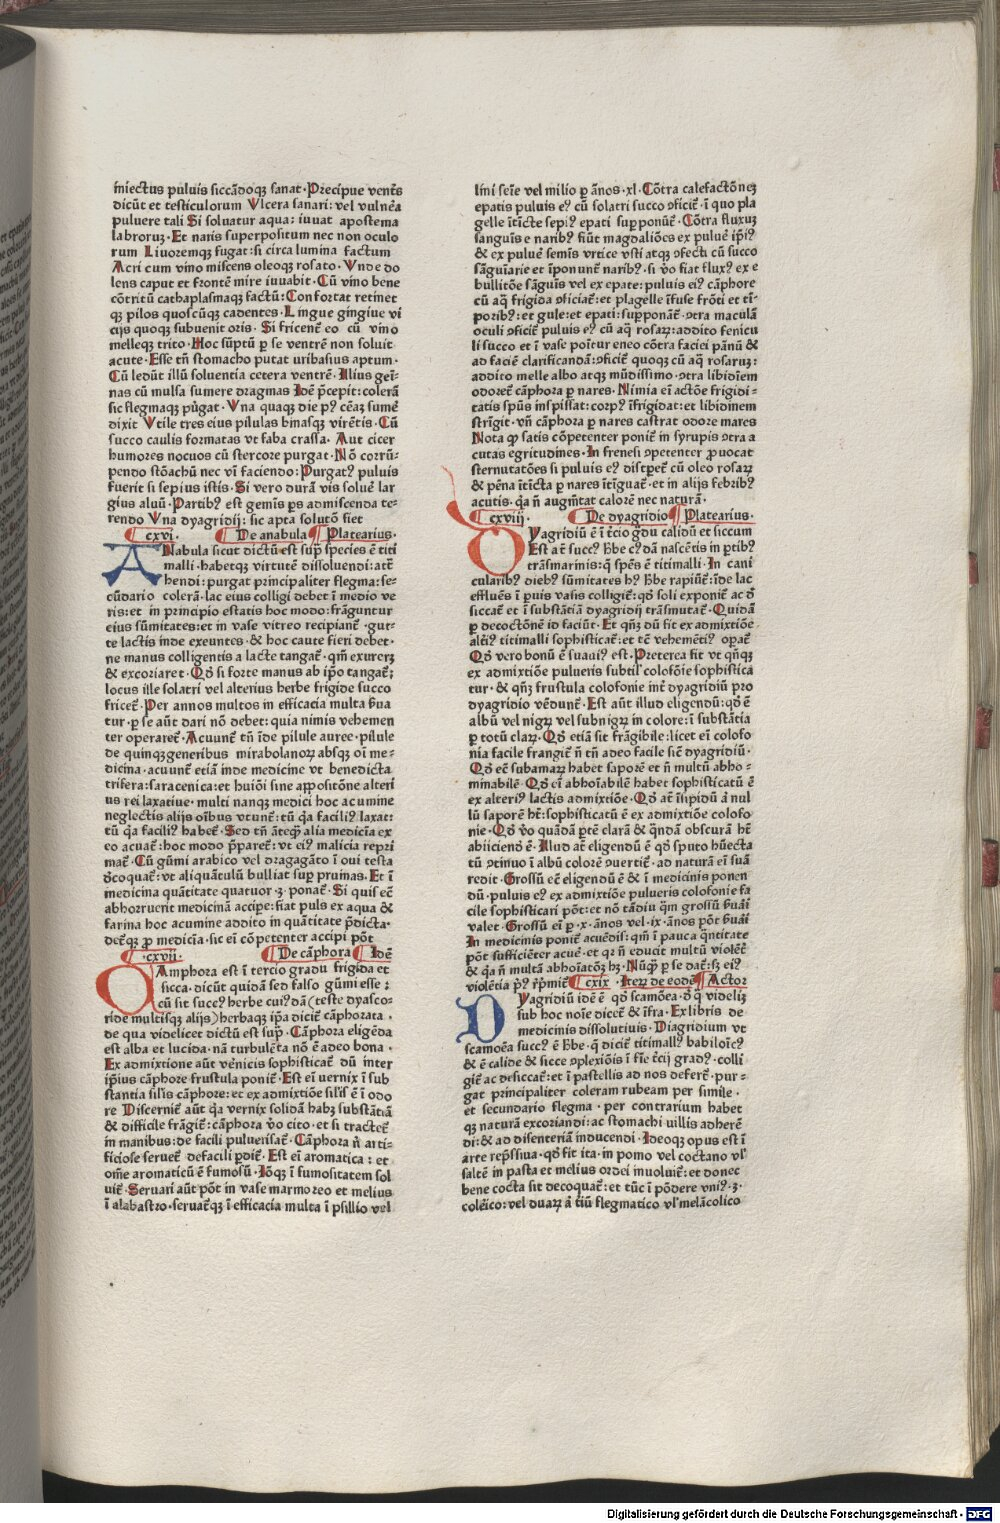 iniectus puluis siccādoqꝫ sanat·Precipue ventꝭ
dicūt et testiculorum Vlcera sanari: vel vulnẽa
puluere tali Si soluatur aqua: iuuat apostema
labroruꝫ·Et naris superpositum nec non oculo
rum Liuoremqꝫ fugat:si circa lumina factum
Acri cum vino miscens oleoqꝫ rosato·Vnde do
lens caput et frontē mire iuuabit·Cū vino bene
cōtritū cathaplasmaqꝫ factū:Confortat retinet
qꝫ pilos quoscūqꝫ cadentes·Lingue gingiue vi
cijs quoqꝫ subuenit oris· Si fricent̄ eo cū vino
melleqꝫ trito·Hoc sūptū p̱ se ventrē non soluit
acute·Esse tn̄ stomacho putat uribasius aptum·
Cū ledūt illū soluentia cetera ventrē·Illius gei=
nas cū mulsa sumere dragmas Idē p̄cepit:colerā
sic flegmaqꝫ pūgat·Vna quaqꝫ die pꝰ cēaꝫ sumē
dixit Vtile tres eius pilulas binasqꝫ virētis·Cū
succo caulis formatas vt faba crassa· Aut cicer
humores nocuos cū stercore purgat·Nō corrū=
pendo stōachū nec vī faciendo:Purgatꝰ puluis
fuerit si sepius istis·Si vero durā vis soluē lar
gius aluū·Partibꝰ est gemīs p̱s admiscenda te=
rendo Vna dyagridij: sic apta solutō fiet
cxvi· De anabula Platearius·
ANabula sicut dictū est sup̱ species ē titi
malli·habetqꝫ virtutē dissoluendi:att̄
hendi:purgat principaliter flegma:se=
cūdario colerā·lac eius colligi debet ī medio ve
ris:et in principio estatis hoc modo:frāguntur
eius sūmitates:et in vase vitreo recipiant̄·gut=
te lactis inde exeuntes·& hoc caute fieri debet·
ne manus colligentis a lacte tangat̄·qm̄ exurerꝫ
& excoriaret·Qđ si forte manus ab ip̄o tangat̄;
locus ille solatri vel alterius herbe frigide succo
fricet̄·Per annos multos in efficacia multa ƀua
tur·p̱ se aut dari nō debet:quia nimis vehemen
ter operaret̄·Acuunt̄ tn̄ īde pilule auree·pilule
de quinqꝫgeneribus mirabolanoꝝ absqꝫ oī me=
dicina·acuunt̄ etiā inde medicine vt benedicta
trifera:saracenica:et huiōi sine app̱ositōne alteri
us rei laxatiue·multi nanqꝫ medici hoc acumine
neglectis alijs oībus vtunt̄:tū q̄a faciliꝰ laxat:
tū q̄a faciliꝰ habet̄·Sed tn̄ āteq̄ꝫ alia medicīa ex
eo acuat̄:hoc modo p̄paret̄:vt eiꝰ malicia repri
mat̄·Cū gūmi arabico vel dragagāto ī oui testa
ꝯcoquat̄:vt aliquātulū bulliat sup̱ prunas·Et ī
medicina quātitate quatuor·ʒ·ponat̄·Si quis eē
abhorruerit medicinā accipe:fiat puls ex aqua &
farina hoc acumine addito in quātitate p̄dicta·
det̄qꝫ p̱ medicīa·sic eī cōpetenter accipi pōt
·cxvii· De cāphora Idē
CAmphora est ī tercio gradu frigida et
sicca·dicūt quidā sed falso gūmi esse:
cū sit succꝰ herbe cuiꝰdā(teste dyasco=
ride multisqꝫ alijs)herbaqꝫ ip̄a dicit̄ cāphorata·
de qua videlicet dictū est sup̱·Cāphora eligēda
est alba et lucida·nā turbulēta nō ē adeo bona·
Ex admixtione aūt vēnicis sophisticat̄ dū inter
ip̄ius cāphore frustula ponit̄·Est eī vernix ī sub
stantia sil̄is cāphore:et ex admixtiōe sil̄is ē ī odo
re Discernit̄ aūt q̄a vernix solidā habꝫ substātiā
& difficile frāgit̄:cāphora v̄o cito·et si tractet̄
in manibus:de facili puluerisat̄·Cāphora n̄ arti=
ficiose seruet̄ defacili p̱dit̄·Est eī aromatica: et
om̄e aromaticū ē fumosū·Iōqꝫ ī fumositatem sol
uit̄·Seruari aūt pōt in vase marmoreo et melius
ī alabastro·seruat̄qꝫ ī efficacia multa ī psillio vel
līni seīe vel milio p̱ ānos·xl·Cōtra calefactōneꝫ
epatis puluis eꝰ cū solatri succo ꝯficit̄·ī quo pla
gelle ītīcte sepiꝰ epati supponūt̄·Cōtra fluxuꝫ
sanguīs e naribꝰ fiūt magdaliōes ex puluē ip̄iꝰ
& ex puluē semīs vrtice vsti atqꝫ ꝯfecti cū succo
sāguīarie et īponunt̄ naribꝰ·si v̄o fiat fluxꝰ ex e
bullitōe sāguīs vel ex epate:puluis eiꝰ cāphore
cū aq̄ frigida ꝯficiat̄:et plagelle īfuse frōti et tī=
poribꝰ:et gule:et epati:supponāt̄·ꝯtra maculā
oculi ꝯficit̄ puluis eꝰ cū aq̄ rosaꝝ:addito fenicu
li succo et ī vase poītur eneo cōtra faciei pānū &
ad faciē clarificandā:ꝯficit̄ quoqꝫ cū aq̄ rosaruꝫ:
addito melle albo atqꝫ mūdissimo·ꝯtra libidīem
odoret̄ cāphora p̱ nares·Nimia eī actōe frigidi=
tatis sp̄us inspissat:corpꝰ īfrigidat:et libidinem
strīgit·vn̄ cāphora p̱ nares castrat odore mares
Nota ꝙ satis cōpetenter ponit̄ in syrupis ꝯtra a
cutas egritudines·In frenesi ꝯpetenter p̱uocat
sternutatōes si puluis eꝰ distp̱et̄ cū oleo rosaꝝ
& pēna ītīcta p̱ nares ītīguat̄·et in alijs febribꝰ
acutis·q̄a n̄ augm̄tat calorē nec naturā·
cxviij· De dyagridio Platearius·
DYagridiū ē ī t̄cio g̱dū calidū et siccum
Est at̄ succꝰ ħbe cꝰdā nascētis in p̱tibꝰ
trāsmarinis:q̄ spēs ē titimalli·In cani
cularibꝰ diebꝰ sūmitates hꝰ ħbe rapiūt̄:īde lac
effluēs ī puis vasis colligit̄:qđ soli exponit̄ ac ꝯ
siccat̄ et ī substātiā dyagridij trāsmutat̄·Quidā
p̱ decoctōnē id faciūt·Et qn̄ꝫ dū fit ex admixtiōe
alēiꝰ titimalli sophisticat̄:et tē vehemētiꝰ opat̄
Qđ vero bonū ē suauiꝰ est·Preterea fit vt qn̄qꝫ
ex admixtiōe pulueris subtil̄ colofōie sophistica
tur·& qn̄ꝫ frustula colofonie int̄ dyagridiū pro
dyagridio vēdunt̄·Est aūt illud eligendū:qđ ē
albū vel nigꝝ vel subnigꝝ in colore:ī substātia
p̱ totū claꝝ·Qđ etiā sit frāgibile:licet eī colofo
nia facile frangit̄ n̄ tn̄ adeo facile siē dyagridiū·
Qđ eē subamaꝝ habet saporē et n̄ multū abho=
minabilē·Qđ eī abhoīabilē habet sophisticatū ē
ex alteriꝰ lactis admixtiōe·Qđ at̄ īsipidū ꝉ nul
lū saporē ht̄:sophisticatū ē ex admixtiōe colofo
nie·Qđ v̄o quādā p̱tē clarā & q̄ndā obscurā ht̄
abiiciendꝰ ē·Illud at̄ eligendū ē qđ sputo hūecta
tū ꝯtinuo ī albū colorē ꝯuertit̄·ad naturā eī suā
redit·Grossū eē eligendū ē & ī medicinis ponen
dū·puluis eꝰ ex admixtiōe pulueris colofonie fa
cile sophisticari pōt:et nō tādiu q̄m grossū ƀuāi
valet·Grossū eī p̱·x·ānos vel·ix·ānos pōt ƀuāi
In medicinis ponit̄ acuēdis:qm̄ ī pauca q̄ntitate
pōt sufficiēter acuē·et qꝛ n̄ educit multū violēt̄
& q̄a n̄ multā abhoīatōꝫ hꝫ·Nūqꝫ p̱ se dat̄:sꝫ eiꝰ
violētia pꝰ rp̄mit̄ cxix·Iteꝝ de eodē Actor
DYagridiū idē ē qđ scamōea·ꝯ q̄ videliꝫ
sub hoc noīe dicet̄ & īfra·Ex libris de
medicinis dissolutiuis·Diagridium vt
scamoēa succꝰ ē ħbe·q̄ dicit̄ titimallꝰ babiloīcꝰ
& ē calide & sicce ꝯplexiōis ī fīe t̄cij gradꝰ·colli
git̄ ac desiccat̄:et ī pastellis ad nos defert̄·pur=
gat principaliter coleram rubeam per simile·
et secundario flegma·per contrarium habet
qꝫ naturā excoriandi:ac stomachi uillis adherē
di:& ad disenteriā inducendi·Ideoqꝫ opus est ī
arte rep̄ssiua·qđ fit ita·in pomo vel coctano vl̄
saltē in pasta et melius ordei inuoluit̄:et donec
bene cocta sit decoquat̄:et tūc ī pōdere vniꝰ·ʒ·
coleīco:vel duaꝝ ꝉ t̄iū flegmatico vl̄ melācolico
Digitalisierung gefördert durch die Deutsche Forschungsgemeinschaft - DFG